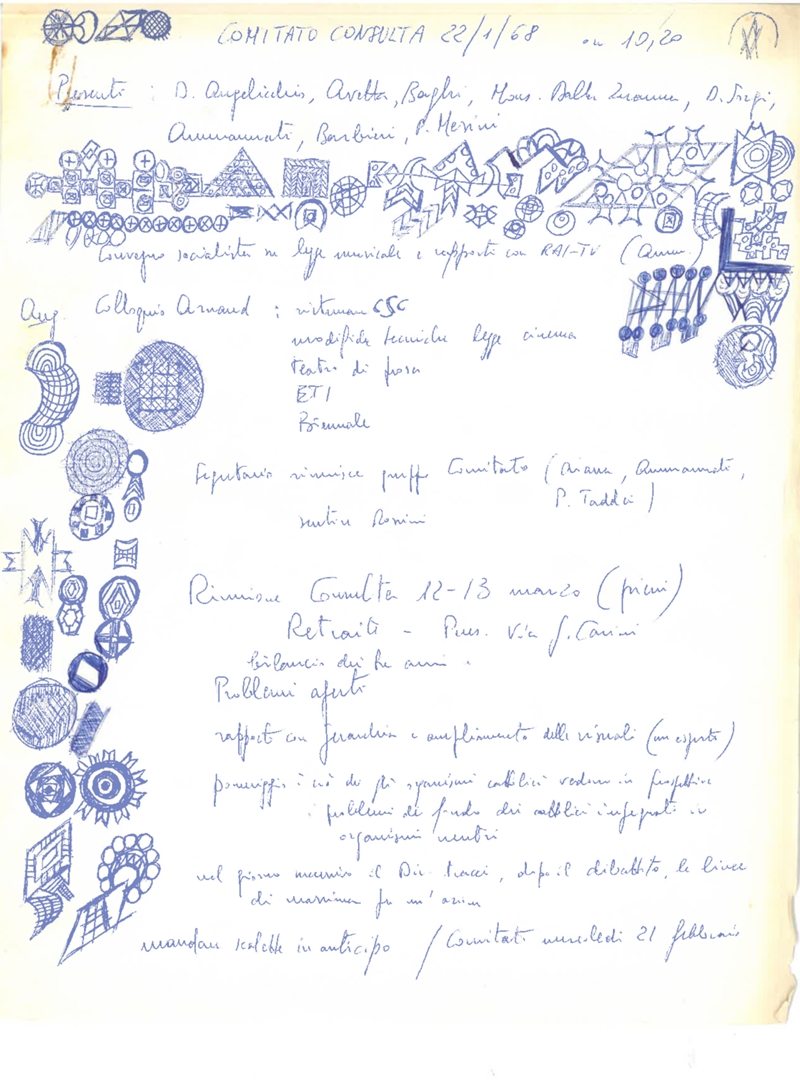 COMITATO CONSULTA 22/1/68 ore 10,20
Presenti : D. Angelicchio, Avetta, Baghi, Mons. Dalla Zuanna, D.
Ammannati, Barbieri, P. Mesini
Convegno socialista su legge musicale e rapporti con RAI-TV (Amm.)
Ang. Colloquio Arnaud : CSC
modifiche tecniche legge cinema
teatro di prosa
ETI
Biennale
Segretario riunisce Comitato (Ariana, Ammannati,
P. Taddei)
sentire Rossini
Riunione Consulta 12-13 marzo (primi)
Retraite - Pues. Via G. Carini
bilancio dei tre anni.
Problemi aperti
rapporti con gerarchia e ampliamento delle visuali (un esperto)
pomeriggio : ciò che gli organismi cattolici vedono in prospettiva
i problemi di fondo dei cattolici impegnati in
organismi neutri
nel giorno successivo il Dir. tracci, dopo il dibattito, le linee
di massima per un'azione
mandare scalette in anticipo / Comitato mercoledì 21 febbraio